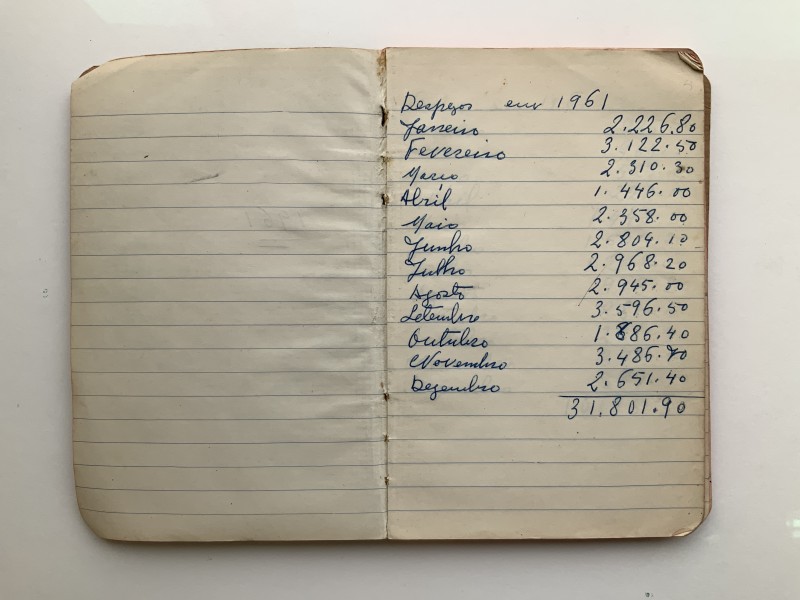 Despezas em 1961
Janeiro 2.226.80
Fevereiro 3.122.50
Março 2.310.30
Abril 1.446.00
Maio 2.358.00
Junho 2.804.10
Julho 2.968.20
Agosto 2.945.00
Setembro 3.596.50
Outubro 1.886.40
Novembro 3.486.70
Dezembro 2.651.40
31.801.90